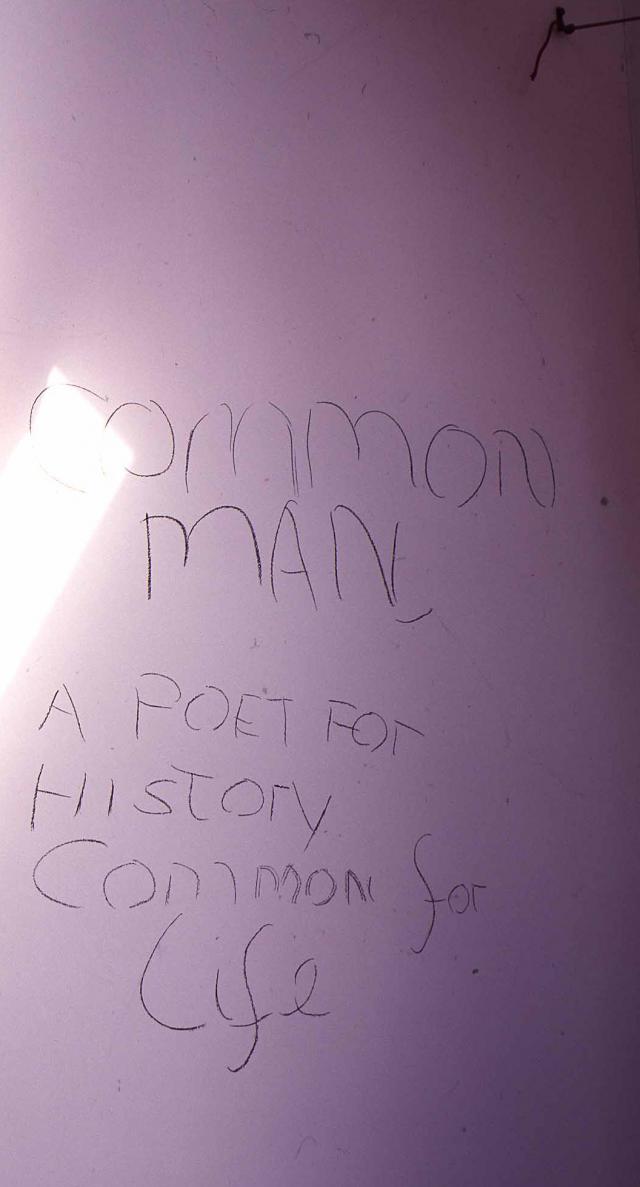 COMMON
MAN
A POET FOr
HISTOrY
COMMON for
Life